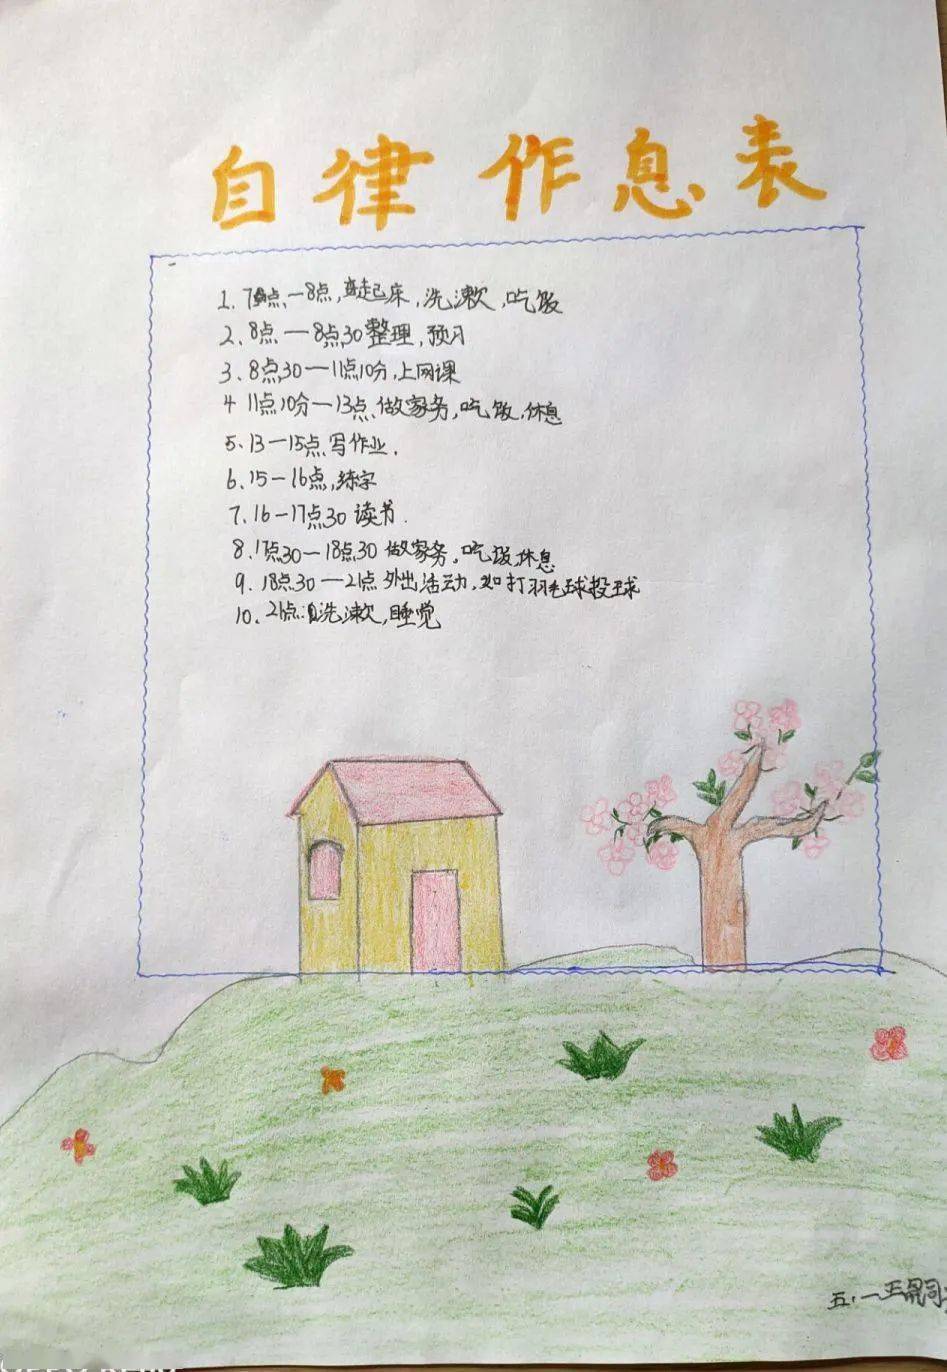 自律作息表
1、7点一8点,起床,洗漱,吃饭
2、8点一8点30整理,预习
3、8点30一11点10分,上网课
4 11点10分一13点、做家务,吃饭,休息
5、13一15点、写作业.
6、15一16点,练字
7、16一17点30 读书.
8、17点30一18点30 做家务,吃饭,休息
9、18点30一21点 外出活动,如打羽毛球投球
10、21点洗漱,睡觉
五·一王